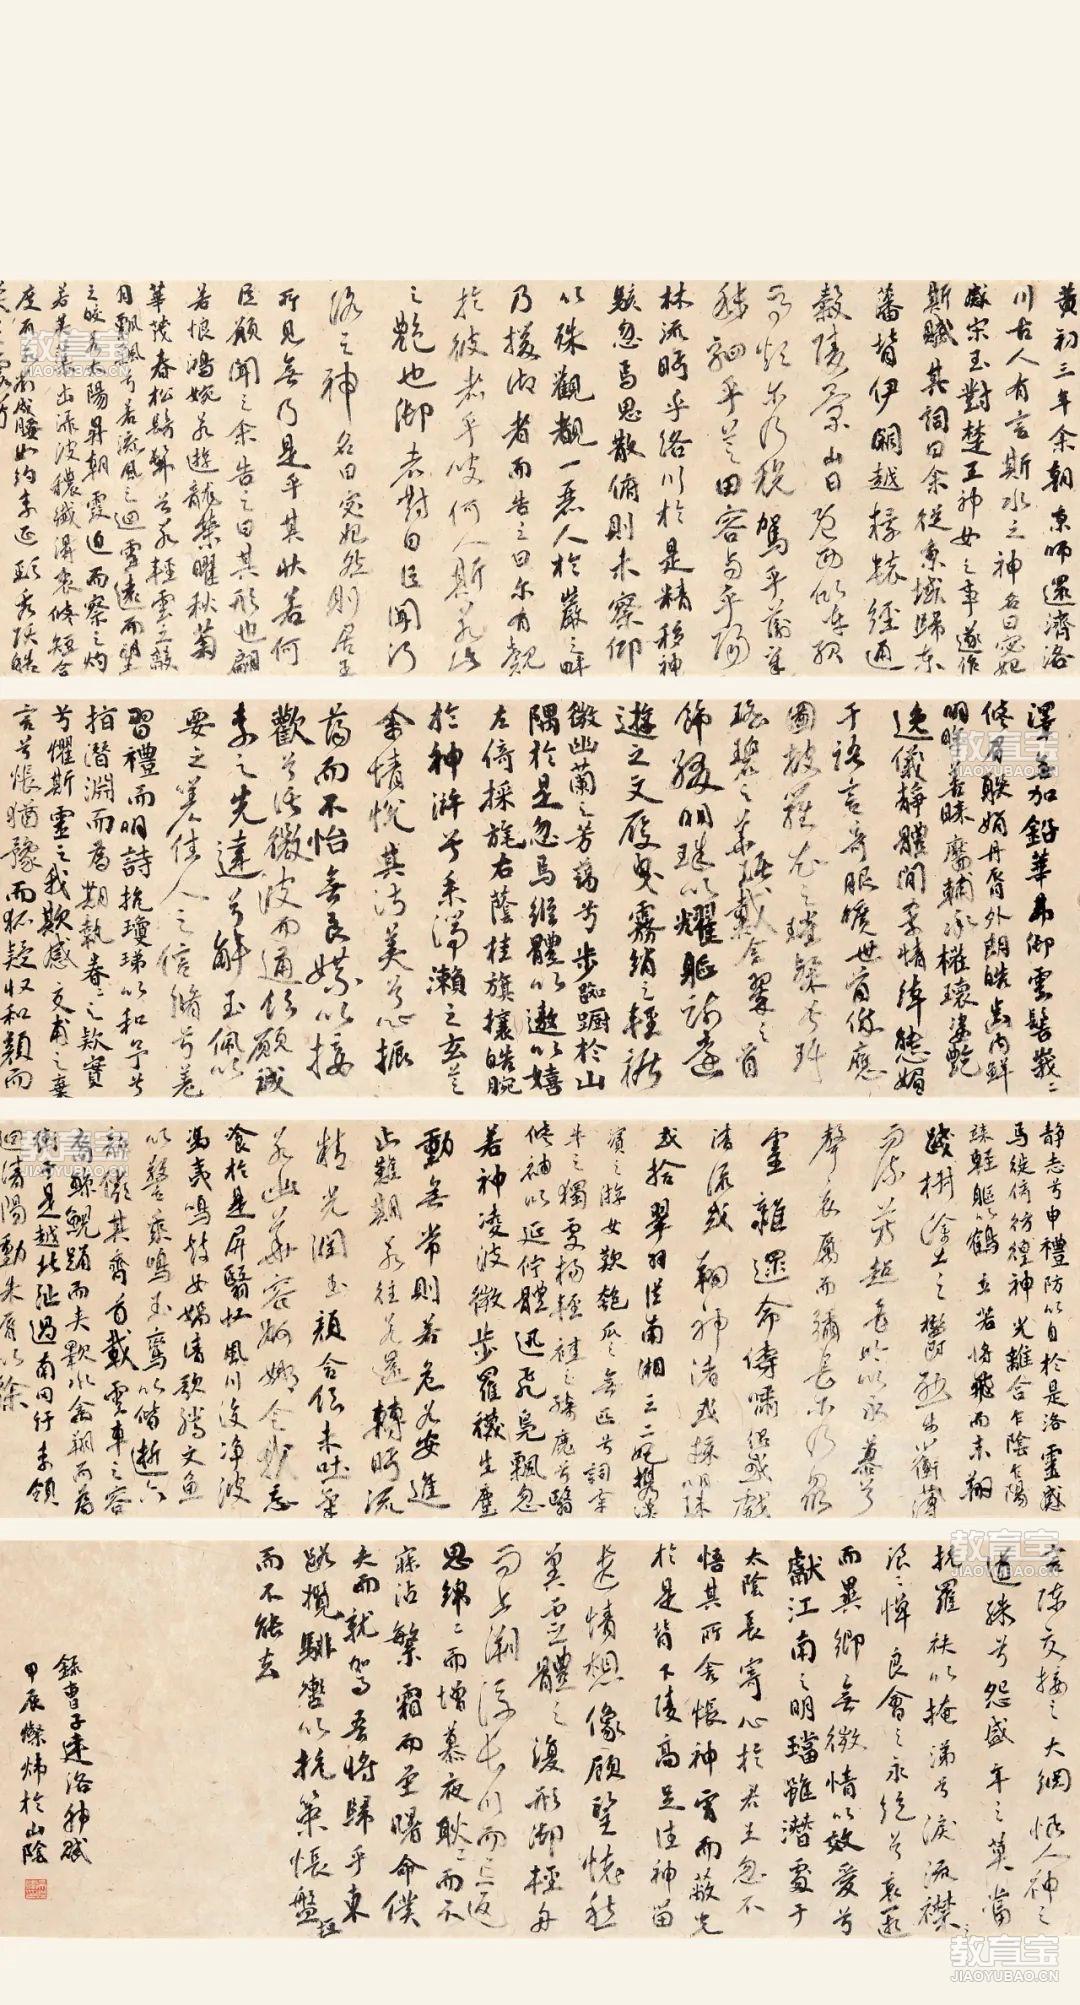 黄初三年余朝京師還濟洛
川古人有言斯水之神名曰宓妃
感宋玉對楚王神女之事遂作
斯賦其詞曰余從京域歸東
藩背伊闕越轘轅經通
谷陵景山日既西傾車殆
馬煩尔乃税駕乎蘅皋
秣駟乎芝田容与乎陽
林流眄乎洛川於是精移神
駭忽焉思散俯則未察仰
以殊觀覩一麗人於巖之畔
乃援御者而告之曰尔有覿
於彼者乎彼何人斯若此
之艷也御者對曰臣聞河
洛之神名曰宓妃然則君王
所見無乃是乎其狀若何
臣願聞之余告之曰其形也翩
若驚鴻婉若遊龍榮曜秋菊
華茂春松髣髴兮若輕雲之蔽
月飄飖兮若流風之迴雪遠而望
之皎若太陽昇朝霞迫而察之灼
若芙蕖出渌波穠纖得衷修短合
度肩若削成腰如約素延頸秀項皓
澤無加鉛華弗御雲髻峩〻
修眉聯娟丹脣外朗皓齒内鮮
明眸善睞靨輔承權瓌姿艷
逸儀静體閒柔情綽態媚
于語言奇服曠世骨像應
圖披羅衣之璀粲兮珥
瑤碧之華琚戴金翠之首
飾綴明珠以耀軀踐遠
遊之文履曳霧綃之輕裾
微幽蘭之芳藹兮步踟躕於山
隅於是忽焉縱體以遨以嬉
左倚採旄右蔭桂旗攘皓腕
於神滸兮采湍瀨之玄芝
余情悦其淑美兮心振
蕩而不怡無良媒以接
歡兮託微波而通辭願誠
素之先達兮解玉佩以
要之嗟佳人之信脩兮羌
習禮而明詩抗瓊珶以和予兮
指潛淵而為期執眷〻之款實
兮懼斯靈之我欺感交甫之棄
言兮悵猶豫而狐疑收和顔而
静志兮申禮防以自於是洛靈感
焉徙倚彷徨神光離合乍陰乍陽
竦輕軀以鶴立若將飛而未翔
踐椒塗之鬱烈步蘅薄
而流芳超長吟以永慕兮
聲哀厲而彌長尔乃衆
靈雜遝命儔嘯侣或戲
清流或翔神渚或採明珠
或拾翠羽從南湘之二妃攜漢
濱之游女歎匏瓜之無匹兮詞牽
牛之獨處揚輕袿之猗靡兮翳
修袖以延佇體迅飛鳧飄忽
若神凌波微步羅襪生塵
動無常則若危若安進
止難期若往若還轉眄流
精光潤玉顔含辭未吐氣
若幽蘭華容婀娜令我忘
飡於是屏翳收風川后净波
馮夷鳴鼓女媧清歌騰文魚
以警乘鳴玉鸞以偕逝六
龍儼其齊首載雲車之容
裔鯨鯢踊而夾轂水禽翔而為
衛於是越北沚過南岡紆素領
迴清陽動朱脣以徐
言陳交接之大綱恨人神之
道殊兮怨盛年之莫當
抗羅袂以掩涕兮淚流襟之
浪〻悼良會之永絶兮哀一逝
而異鄉無微情以效愛兮
獻江南之明璫雖潛處于
太陰長寄心於君王忽不
悟其所舍悵神宵而蔽光
於是背下陵高足往神留
遺情想像顧望懷愁
冀靈體之復形御輕舟
而上溯浮長川而忘返
思綿〻而增慕夜耿〻而不
寐沾繁霜而至曙命僕
夫而就駕吾將歸乎東
路攬騑轡以抗策悵盤桓
而不能去
錄曹子建洛神賦
甲辰燦炜於山陰
教育宝
JIAOYUBAO.CN